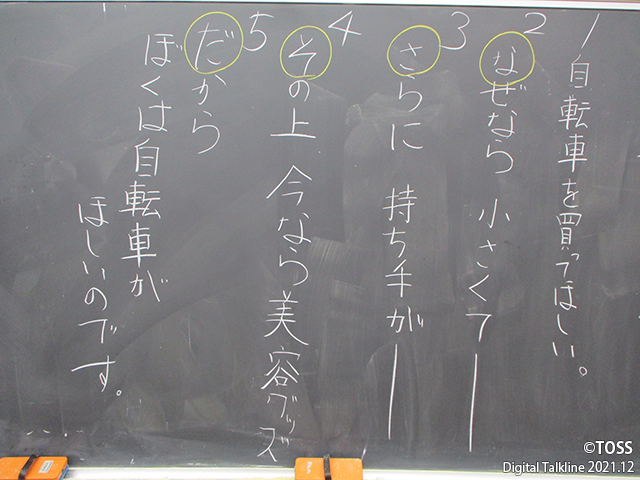 1 自転車を買ってほしい。
2 なぜなら 小さくて―
3 さらに 持ち手が―
4 その上 今なら美容グッズ
5 だから
ぼくは自転車が
ほしいのです。
©TOSS
Digital Talkline 2021.12